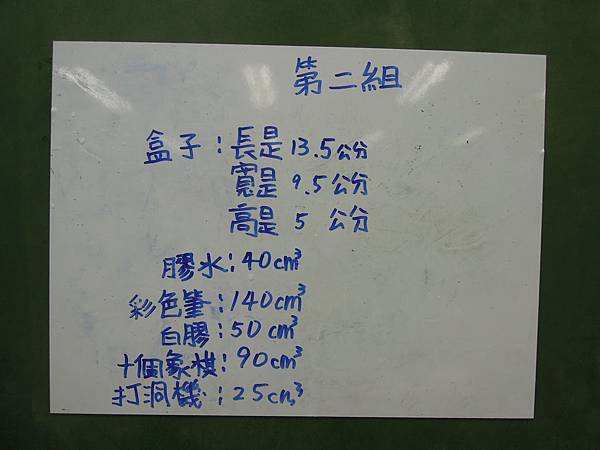 第二組
盒子：長是 13.5公分
寬是 9.5公分
高是 5 公分
膠水：40cm³
彩色筆：140cm³
白膠：50cm³
十個象棋：90cm³
打洞機：25cm³